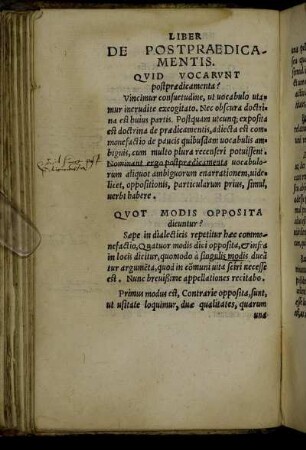 LIBER
DE POSTPRAEDICA-
MENTIS.
QVID VOCARVNT
postprædicamenta?
Vincimur consuetudine, ut vocabulo uta-
mur inerudite excogitato. Nec obscura doctri
na est huius partis. Postquam utcunq; exposita
est doctrina de prædicamentis, adiecta est com-
monefactio de paucis quibusdam vocabulis am
biguis, cum multo plura recenseri potuissent.
Nominant ergo postprædicamenta vocabulo-
rum aliquot ambiguorum enarrationem, uide-
licet, oppositionis, particularum prius, simul,
uerbi habere.
QVOT MODIS OPPOSITA
dicuntur?
Sæpe in dialecticis repetitur hæc commo-
nefactio, Quatuor modis dici opposita, & infra
in locis dicitur, quomodo à singulis modis ducã
tur argumẽta, quod in cõmuni uita sciri necesse
est. Nunc breuissime appellationes recitabo.
Primus modus est, Contrarie opposita, sunt,
ut usitate loquimur, duæ qualitates, quarum
una